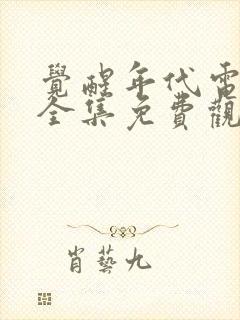 覺醒年代電
全集免費觀
肖藝九